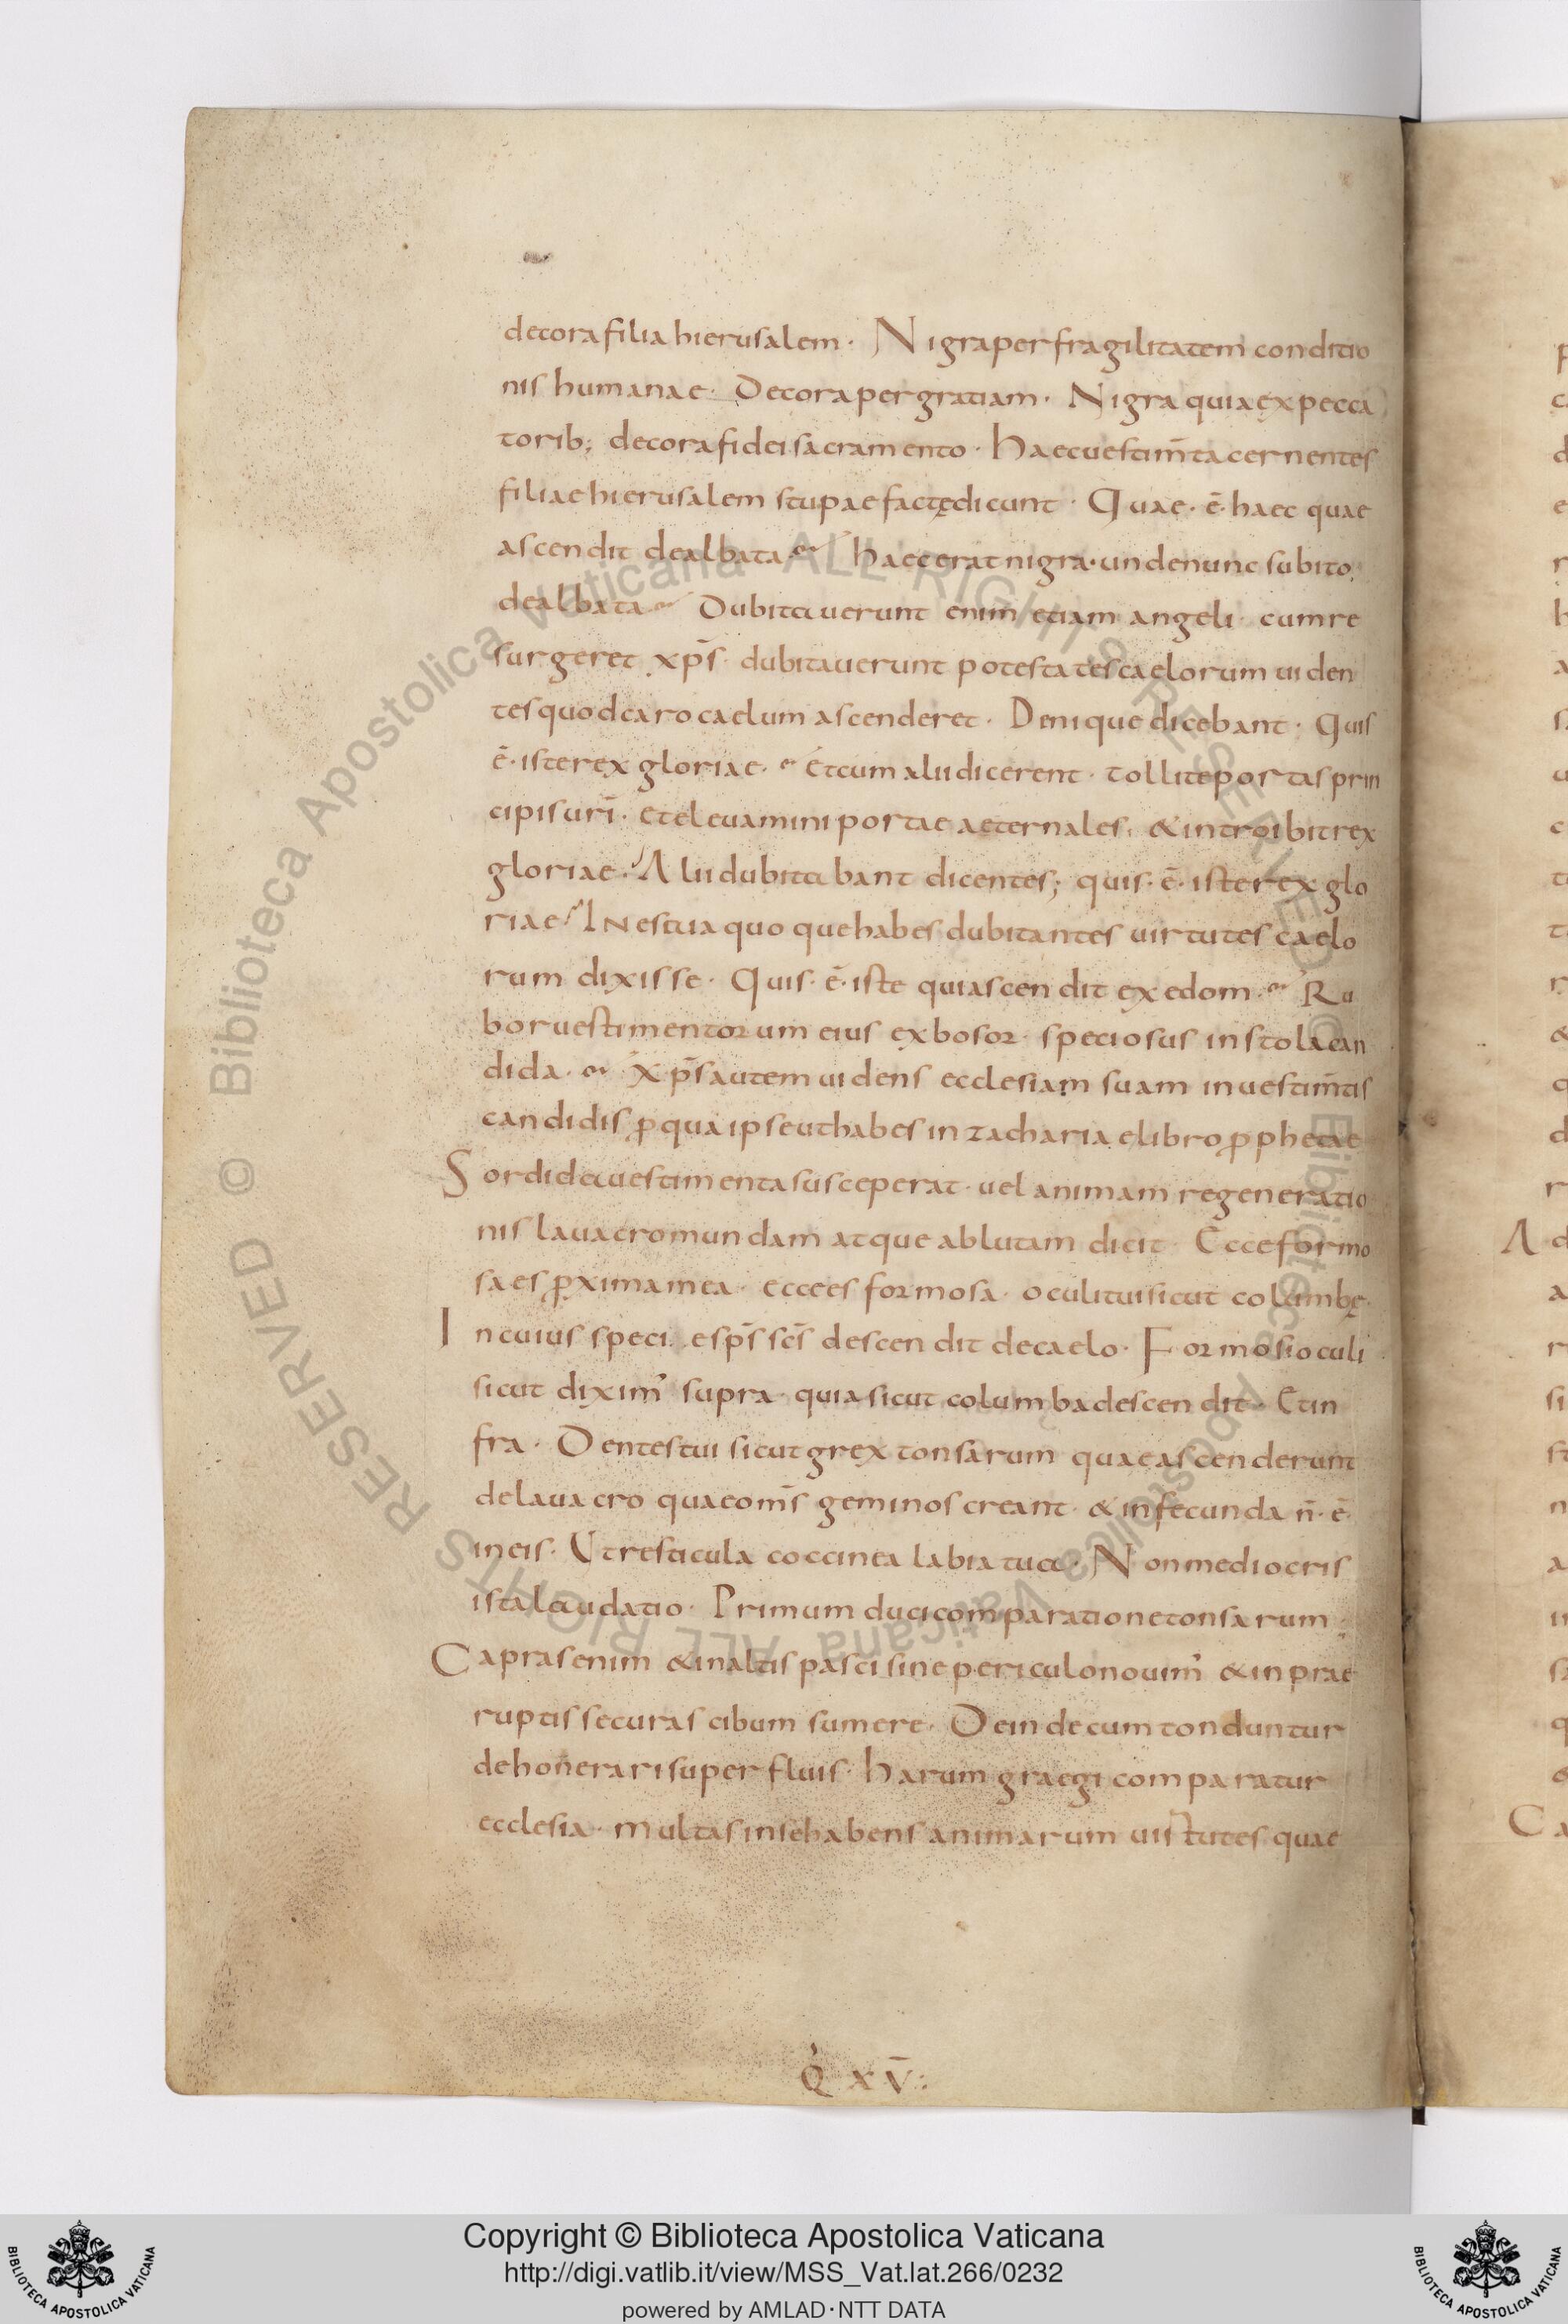 decora filia hierusalem · Nigra per fragilitatem conditio
nis humanae · Decora per gratiam · Nigra quia ex pecca
torib; decora fidei sacramento · Haec uestim̄ta cernentes
filiae hierusalem stupaefactę dicunt · Quae · ē · haec quae
ascendit dealbata · haec erat nigra · unde nunc subito
dealbata · Dubitauerunt enim etiam angeli cum re
surgeret xp̄s · dubitauerunt potestates caelorum uiden
tes quod caro caelum ascenderet · Denique dicebant · Quis
ē · iste rex gloriae · Et cum alii dicerent · tollite portas prin
cipis uri̅ · et eleuamini portae aeternales · & introibit rex
gloriae · Alii dubitabant dicentes; quis · ē · iste rex glo
riae · In estia quoque habes dubitantes uirtutes caelo
rum dixisse · Quis · ē · iste qui ascendit ex edom · Ru
bor uestimentorum eius ex bosor · speciosus in stola can
dida · Xp̄s autem uidens ecclesiam suam in uestim̄tis
candidis p̄ qua ipse ut habes in zachariae libro p̄phetae
Sordida uestimenta susceperat · uel animam regeneratio
nis lauacro mundam atque ablutam dicit · Ecce formo
sa es p̄xima mea · ecce es formosa · oculi tui sicut columbę ·
In cuius speci e sp̄s sc̄s descendit de caelo · Formosi oculi
sicut diximꝰ supra · quia sicut columba descendit · Et in
fra · Dentes tui sicut grex tonsarum quae ascenderunt
de lauacro quae om̄s geminos creant · & infecunda n̄ · ē
in eis · Ut resticula coccinea labia tua · Non mediocris
ista laudatio · Primum duci comparatione tonsarum ·
Capras enim & in altis pasci sine periculo nouimꝰ & in prae
ruptis securas cibum sumere · Deinde cum tonduntur
dehonerari superfluis · harum graegi comparatur
ecclesia · multas in se habens animarum uirtutes quae
Q XV̄:
© Biblioteca Apostolica Vaticana ALL RIGHTS RESERVED © Biblioteca Apostolica Vaticana ALL RIGHTS RESERVED
Copyright © Biblioteca Apostolica Vaticana
http://digi.vatlib.it/view/MSS_Vat.lat.266/0232
powered by AMLAD·NTT DATA
BIBLIOTECA APOSTOLICA VATICANA
BIBLIOTECA APOSTOLICA VATICANA